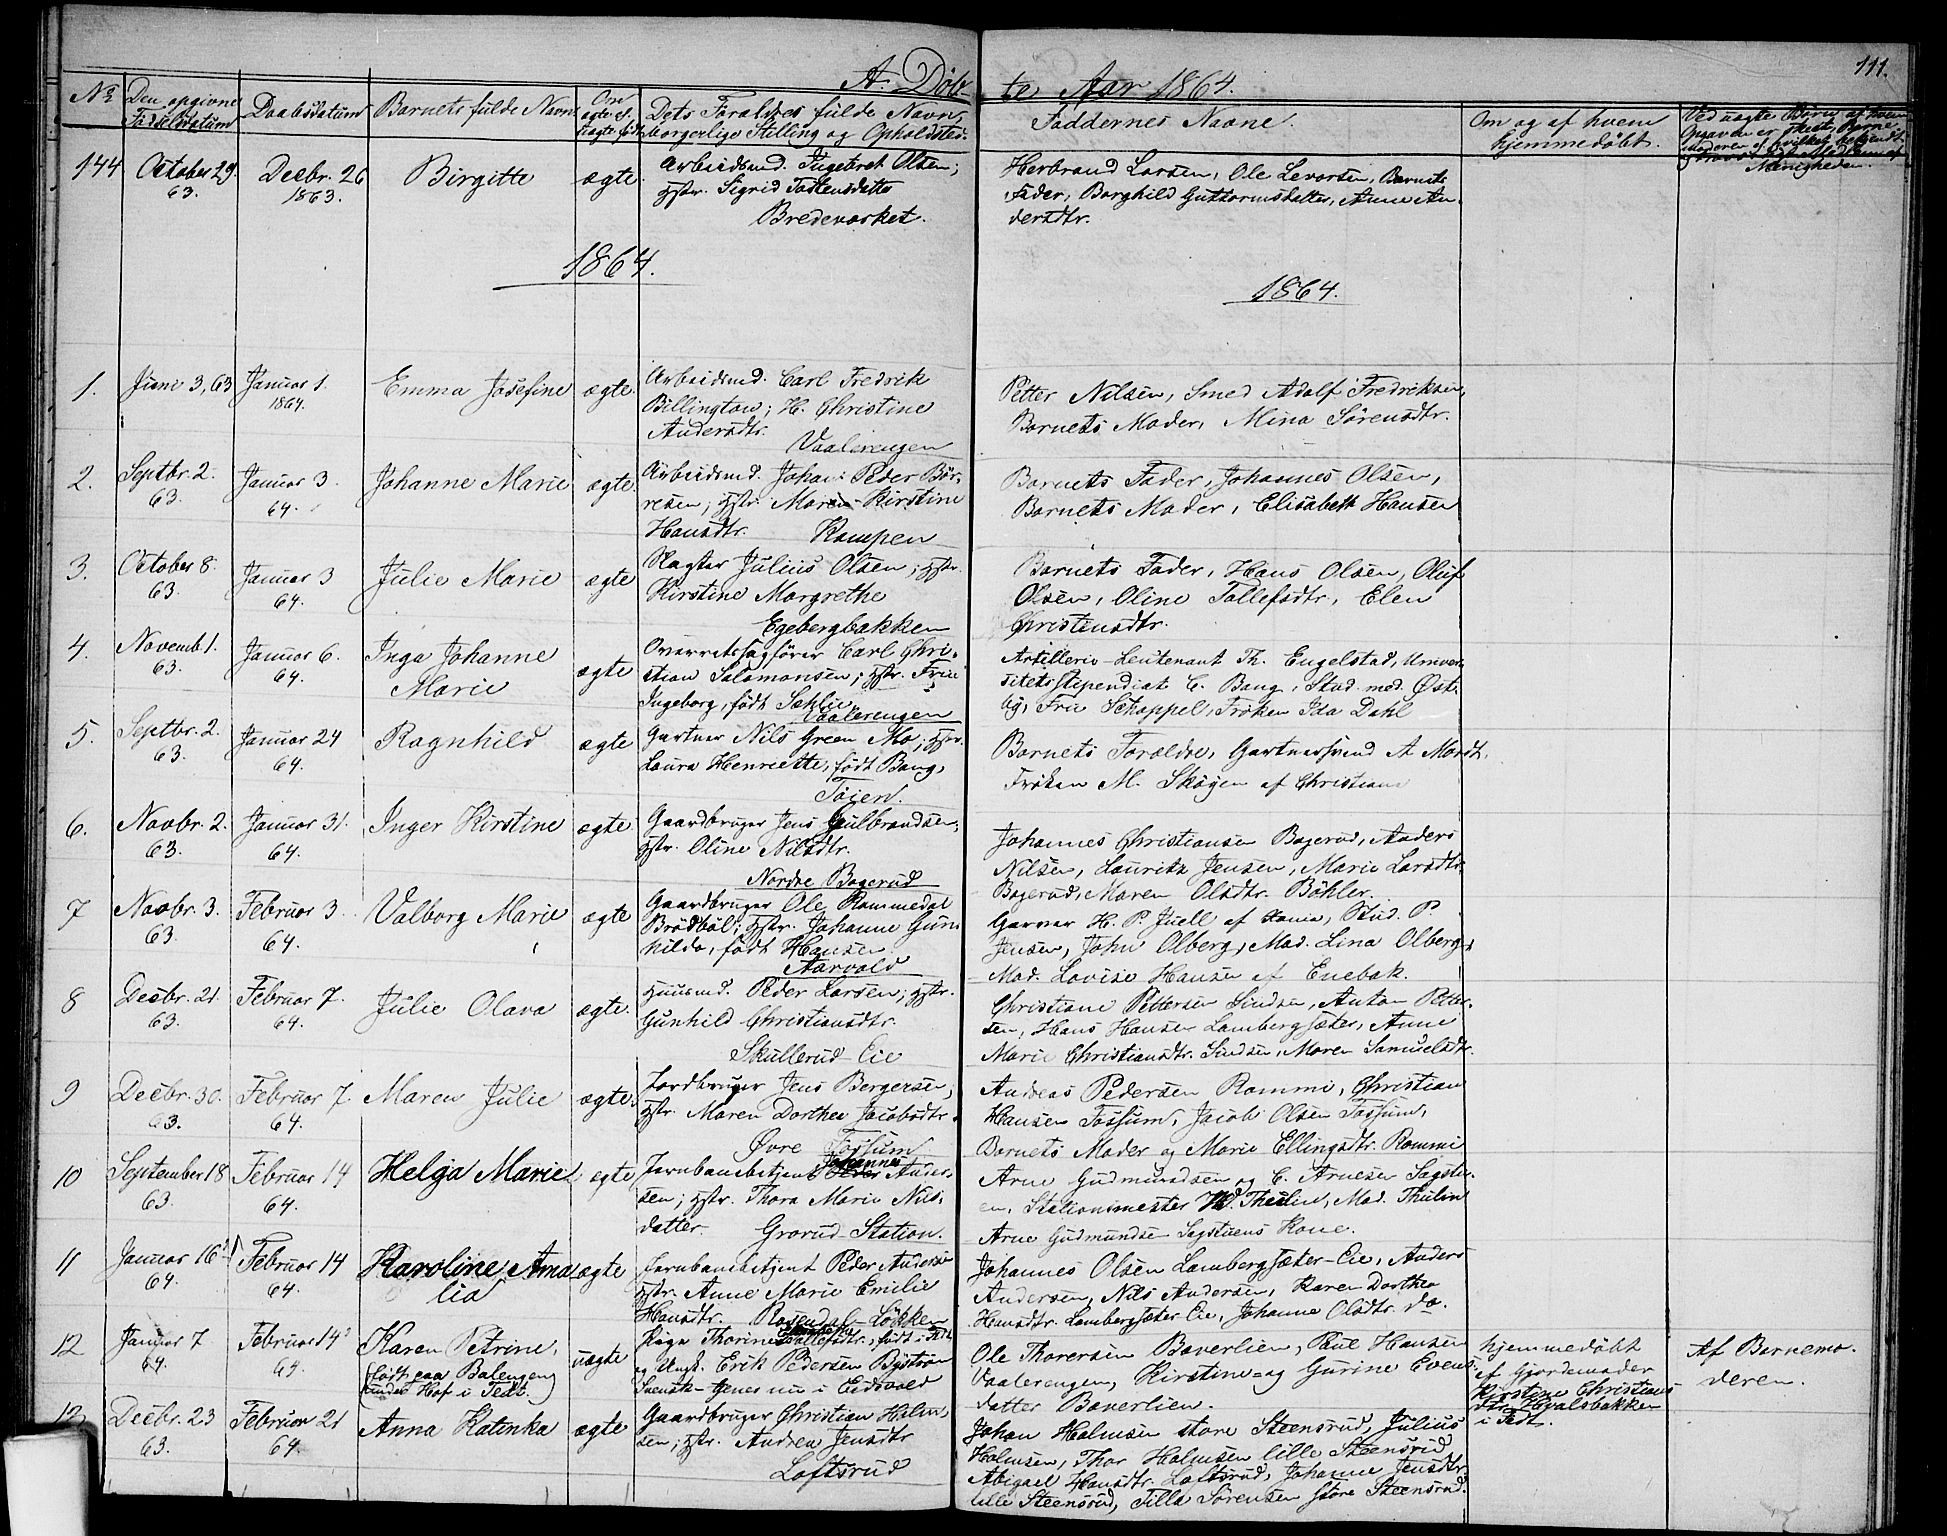 111.
A. Døb-
te Aar 1864.
No
Den opgivne Fødselsdatum
Daabsdatum
Barnets fulde Navn
Om ægte el. uægte født
Dets Forældres fulde Navn, borgerlige Stilling og Opholdsted.
Faddernes Navne.
Om og af hvem hjemmedøbt.
Ved uægte Børn af hvem
Menigheden.
144
October 29
63.
Decbr. 26
1863.
Birgitte
ægte
Arbeidsmd. Ingebret Olsen;
Hstr. Sigrid Tostensdatter
Bredevasket.
Herbrand Larsen, Ole Levorsen, Barnets
Fader, Borghild Guttormsdatter, Anne An-
dersdtr.
1864.
1864.
1.
Juni 3, 63
Januar 1.
1864.
Emma Josefine
ægte
Arbeidsmd. Carl Fredrik
Billington; H. Christine
Andersdtr.
Vaalerengen
Petter Nilsen, Smed Adolf Fredriksen,
Barnets Moder, Mina Sørensdtr.
2.
Septbr. 2.
63.
Januar 3
64.
Johanne Marie
ægte
Arbeidsmd. Johan Peder Bør-
resen; Hstr. Maren Kirstine
Hansdtr.
Kampen
Barnets Fader, Johannes Olsen,
Barnets Moder, Elisabeth Hansen
3.
October 8.
63.
Januar 3
64.
Julie Marie
ægte
Slagter Julius Olsen; Hstr.
Kirstine Margrethe
Egebergbakken
Barnets Fader, Hans Olsen, Oluf
Olsen, Oline Tollefsdtr, Elen
Christensdtr.
4.
Novemb. 1.
63.
Januar 6.
64.
Inga Johanne
Marie
ægte
Overretssagfører Carl Chri-
stian Salomonsen; Hstr. Frue
Ingeborg, født Sæhlie,
Vaalerengen
Artilleri-Leutenant Th. Engelstad, Univer-
sitetsstipendiat C. Bang, Stud. med. Øst-
by, Frue Schappel, Frøken Ida Dahl
5.
Septbr. 2.
63.
Januar 24
64.
Ragnhild
ægte
Gartner Nils Green Mo; Hstr.
Laura Henriette, født Bang,
Tøien.
Barnets Forældre, Gartnersvend A Mardt,
Frøken M. Skøyen af Christiania
6.
Novbr. 2.
63.
Januar 31.
64.
Inger Kirstine
ægte
Gaardbruger Jens Gulbrandsen;
Hstr. Oline Nilsdtr.
Nordre Bogerud
Johannes Christiansen Bogerud, Anders
Nilsen, Lauritz Jensen, Marie Larsdtr.
Bogerud, Maren Olsdtr. Bøhler.
7
Novbr. 3.
63.
Februar 3
64.
Valborg Marie
ægte
Gaardbruger Ole Rommedal
Brødbøl; Hstr. Johanne Gun-
hilde, født Hansen
Aarvold
Garver H. P. Juell af Xania, Stud. P.
Jensen, John Olberg, Mad. Lina Olberg,
Mad. Lovise Hansen af Enebak.
8
Decbr. 21.
63.
Februar 7.
64.
Julie Olava
ægte.
Huusmd. Peder Larsen; Hstr.
Gunhild Christiansdtr.
Skullerud-Eie
Christiane Pettersen Sindsen, Anton Petter-
sen, Hans Hansen Lambergsæter, Anne
Marie Christiansdtr. Sindsen, Maren Samuelsdtr.
9
Decbr. 30.
63.
Februar 7.
64.
Maren Julie
ægte.
Jordbruger Jens Bergersen,
Hstr. Maren Dorthea Jacobsdtr.
Øvre Fossum
Andreas Pedersen Rommi, Christian
Hansen Fossum, Jacob Olsen Fossum,
Barnets Moder og Marie Ellingsdtr. Rommi
10
September 18
63.
Februar 14
64.
Helga Marie
ægte
Johannes
Jernbanebetjent Ander-
sen; Hstr. Thora Marie Nils-
datter.
Grorud-Station.
Arne Gudmundsen og C. Arnesen Sagstu-
en, Stationsmester W. Thulin, Mad. Thulin
Arne Gudmundsen Sagstuens Kone.
11
Januar 16
64.
Februar 14
64.
Karoline Ama
lia
ægte
Jernbanebetjent Peder Andersen
Hstr. Anne Marie Emilie
Hansdtr. Rosendal-Løkken
Johannes Olsen Lambergsæter-Eie, Anders
Andersen, Nils Andersen, Karen Dorthea
Hansdtr. Lambergsæter Eie, Johanne Olsdtr. do.
12
Januar 7
64.
Februar 14
64.
Karen Petrine,
(født paa Balengen
under Hof i Fedt.)
uægte
Pige Thorine
og Ungk. Erik Pedersen Byström
Svensk-tjener nu i Eidsvold
Ole Thoresen Baverlien, Paul Hansen
Vaalerengen, Kirstine og Gurine Evens-
datter Baverlien.
Hjemmedøbt
af Gjordemoder
Kirstine Christians
dtr. Hvalsbakken
i Fedt.
Af Barnemo-
deren.
13
Decbr. 23
63.
Februar 21
64.
Anna Katinka
ægte
Gaardbruger Christian Holm-
sen; Hstr. Andrea Jensdtr
Loftsrud
Johan Holmsen store Steensrud, Julius
Holmsen, Thor Holmsen lille Steensrud
Abigael Hansdtr. Loftsrud, Johanne Jensdtr.
lille Steensrud, Tilla Sørensen store Steensrud.